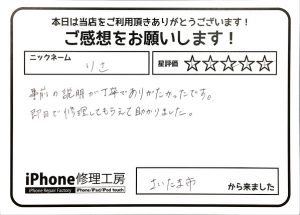 本日は当店をご利用頂きありがとうございます！
ご感想をお願いします！
ニックネーム
りさ
星評価 ☆☆☆☆☆
事前の説明が丁寧でありがたかったです。
即日で修理してもらえて助かりました。
iPhone修理工房
iPhone Repair Factory iPhone/iPad/iPod touch
さいたま市
から来ました